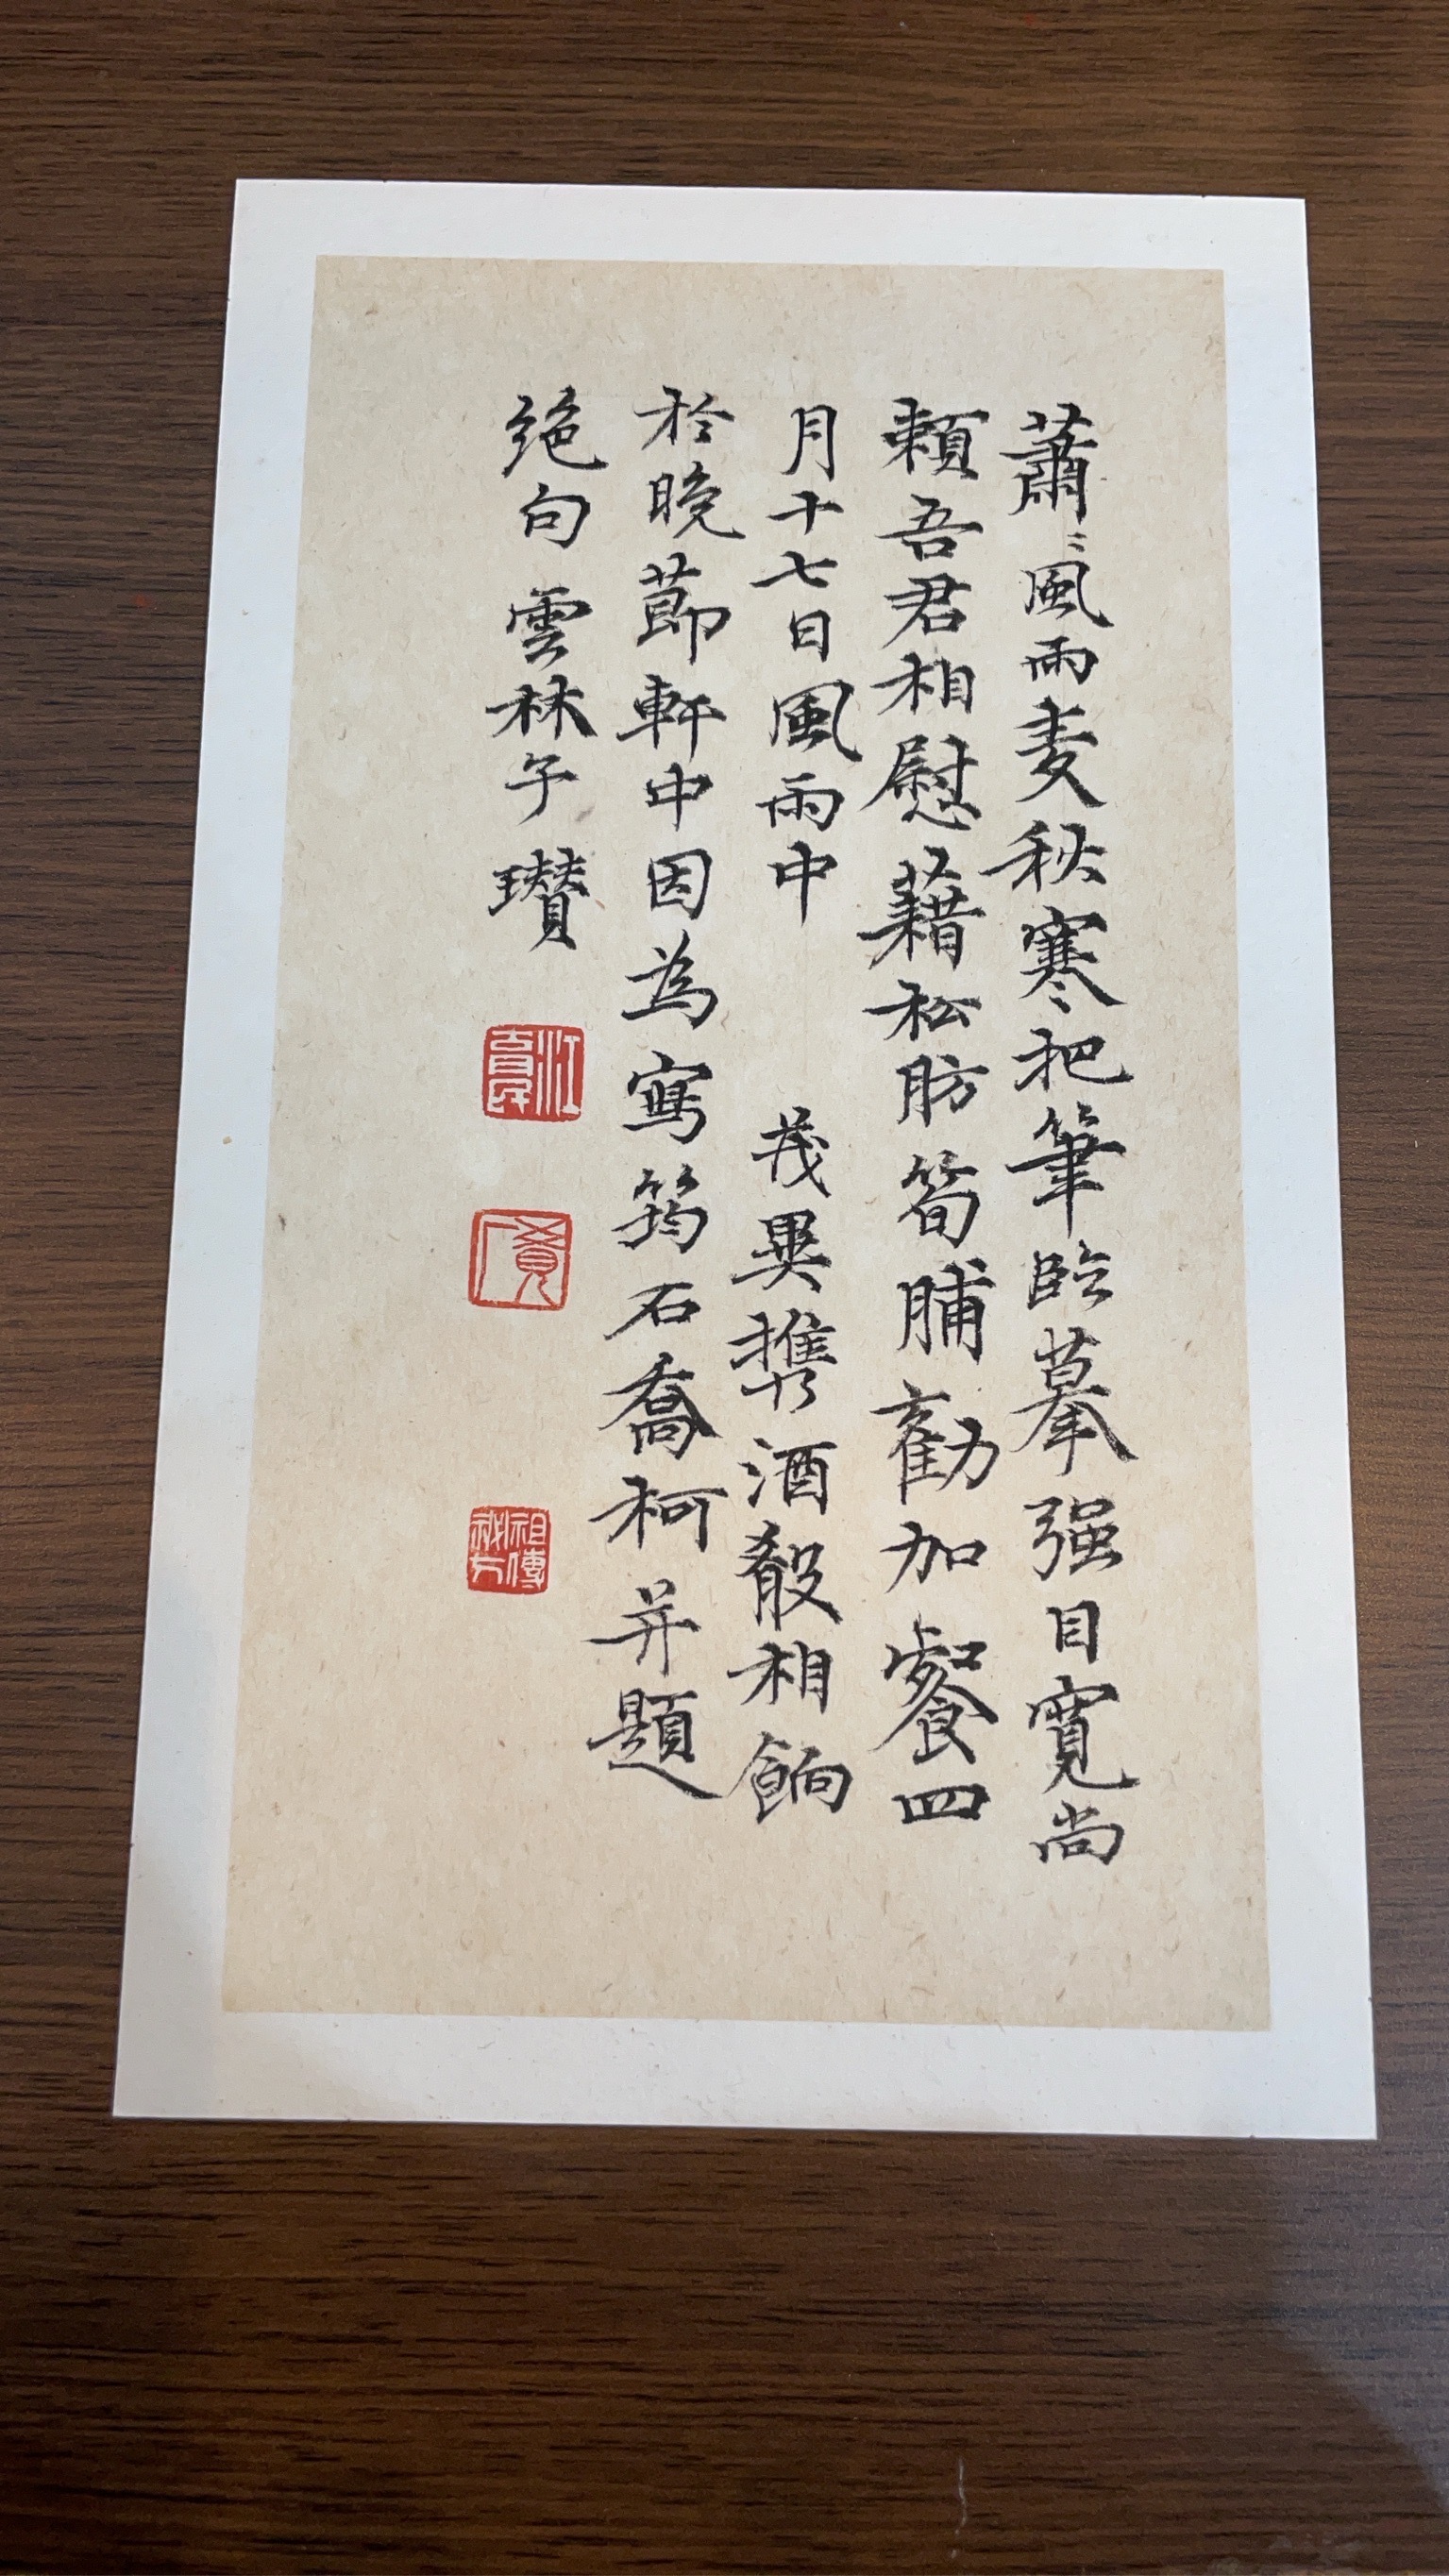 蕭〻風雨麦秋寒把筆臨摹强目寬尚
頼吾君相慰藉松肪筍脯勸加餐四
月十七日風雨中 茂異携酒殽相餉
於晚莭軒中因為寫筠石喬柯并題
絶句雲林子瓚
祖傳